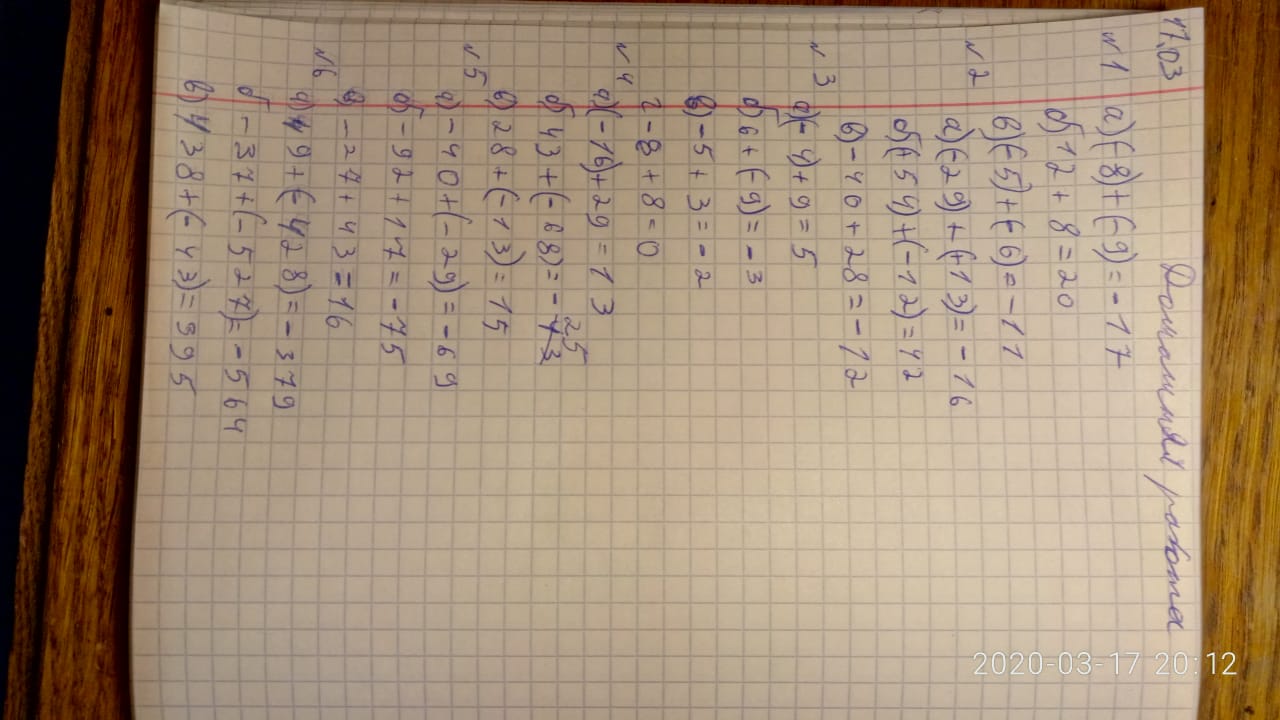 17.03
Домашняя работа
№1 а) (-8)+(-9)=-17
б) 12+8=20
в) (-5)+(-6)=-11
№2 а) (-29)+(+13)=-16
б) (-54)+(-12)=42
в) -40+28=-12
№3 а) (-4)+9=5
б) 6+(-9)=-3
в) -5+3=-2
г -8+8=0
№4 а) (-16)+29=13
б) 43+(-68)=-25
в) 28+(-13)=15
№5 а) -40+(-29)=-69
б) -92+17=-75
в) -27+43=16
№6 а) 49+(-428)=-379
б -37+(-527)=-564
в) 438+(-43)=395
2020-03-17 20:12